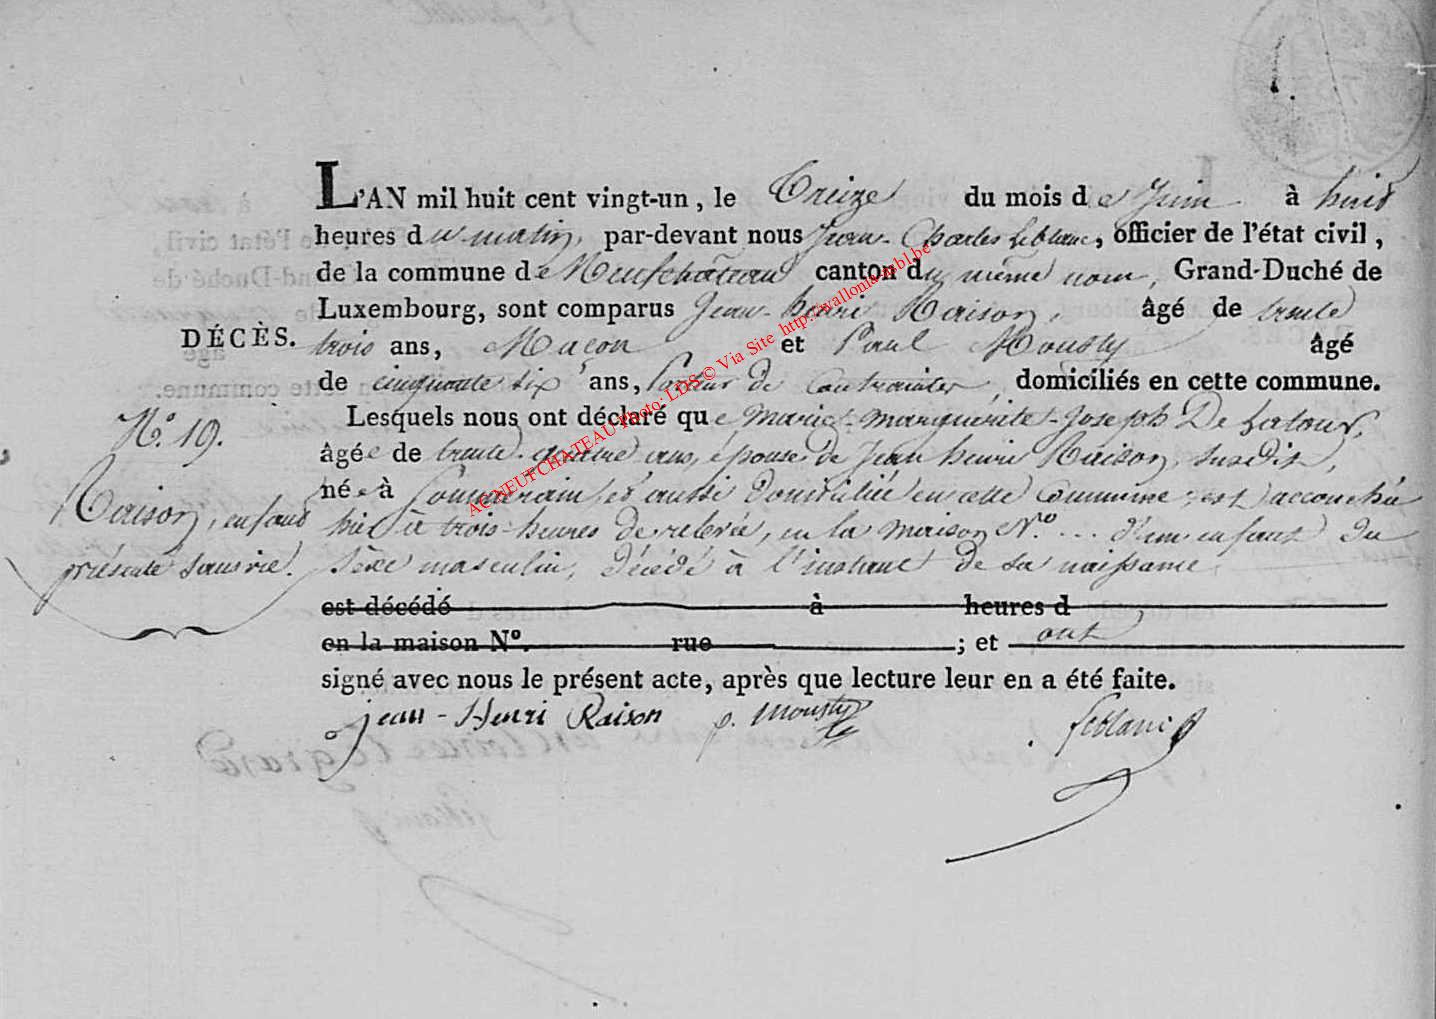 L'AN mil huit cent vingt-un, le Treize du mois de Juin à huit
heures du matin, par-devant nous Jean-Charles Leblanc, officier de l'état civil,
de la commune de Neufchâteau canton du même nom, Grand-Duché de
Luxembourg, sont comparus Jean-henri Raison, âgé de trente
DÉCÈS.
trois ans, Maçon et Paul Mousty âgé
de cinquante six ans, Porteur de Contraintes, domiciliés en cette commune.
N.° 19.
Raison, enfant
présenté sans vie.
Lesquels nous ont déclaré que Marie-Marguérite-Joseph De Latour,
âgée de trente-quatre ans, épouse de Jean henri Raison, susdit,
née à et aussi domiciliée en cette Commune, est accouchée
hier à trois heures de relevée, en la maison N.° ... d'un enfant du
Sèxe masculin, décédé à l'instant de sa naissance.
est décédé à heures d
en la maison N°. rue ; et ont
signé avec nous le présent acte, après que lecture leur en a été faite.
jean-Henri Raison p. Mousty Leblanc
AC NEUFCHATEAU Photo: LDS © Via Site http://wallonia-mbl.be